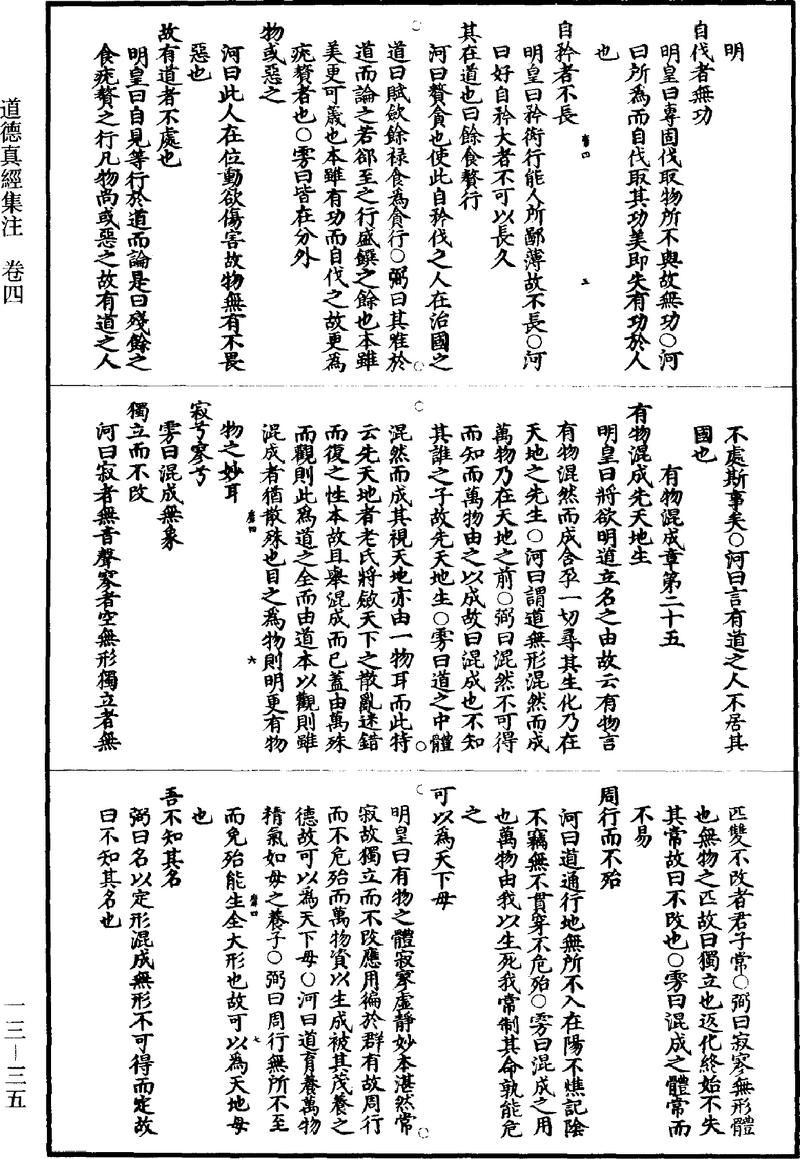 明
自伐者無功
明皇曰專固伐取物所不與故無功○河
曰所為而自伐取其功美即失有功於人
也
自矜者不長
明皇曰矜衒行能人所鄙薄故不長○河
曰好自矜大者不可以長久
其在道也曰餘食贅行
河曰贅貪也使此自矜伐之人在治國之
道曰賦斂餘祿食為貪行○弼曰其唯於
道而論之若郤至之行盛饌之餘也本雖
美更可薉也本雖有功而自伐之故更為
疣贅者也○雱曰皆在分外
物或惡之
河曰此人在位動欲傷害故物無有不畏
惡也
故有道者不處也
明皇曰自見等行於道而論是曰殘餘之
食疣贅之行凡物尚或惡之故有道之人
不處斯事矣○河曰言有道之人不居其
國也
有物混成章第二十五
有物混成先天地生
明皇曰將欲明道立名之由故云有物言
有物混然而成含孕一切尋其生化乃在
天地之先生○河曰謂道無形混然而成
萬物乃在天地之前○弼曰混然不可得
而知而萬物由之以成故曰混成也不知
其誰之子故先天地生○雱曰道之中體
混然而成其視天地亦由一物耳而此特
云先天地者老氏將斂天下之散亂迷錯
而復之性本故且舉混成而已蓋由萬殊
而觀則此為道之全而由道本以觀則雖
混成者猶散殊也目之為物則明更有物
物之妙耳
寂兮寥兮
雱曰混成無象
獨立而不改
河曰寂者無音聲寥者空無形獨立者無
匹雙不改者君子常○弼曰寂寥無形體
也無物之匹故曰獨立也返化終始不失
其常故曰不改也○雱曰混成之體常而
不易
周行而不殆
河曰道通行地無所不入在陽不燋託陰
不竊無不貫穿不危殆○雱曰混成之用
也萬物由我以生死我常制其命孰能危
之
可以為天下母
明皇曰有物之體寂寥虛靜妙本湛然常
寂故獨立而不改應用徧於群有故周行
而不危殆而萬物資以生成被其茂養之
德故可以為天下母○河曰道育養萬物
精氣如母之養子○弼曰周行無所不至
而免殆能生全大形也故可以為天地母
也
吾不知其名
弼曰名以定形混成無形不可得而定故
曰不知其名也
道德真經集注　卷四
一三—三五